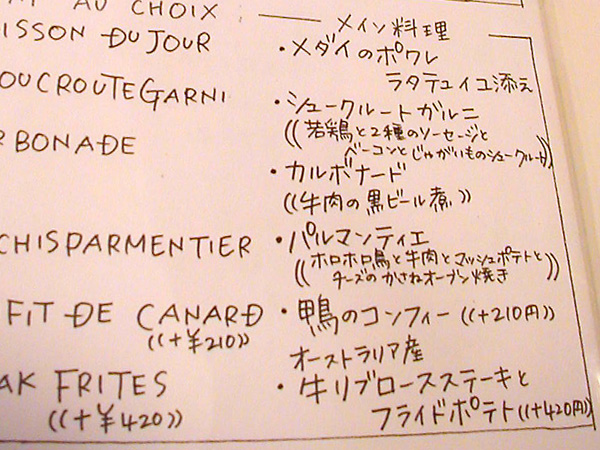 AU CHOIX
ISSON DU JOUR
OUCROUTE GARNI
RBONADE
CHISPARMENTIER
FIT DE CANARD
((+¥210))
AK FRITES
((+¥420))
メイン料理
・メダイのポワレ
ラタテュイユ添え
・シュークルートガルニ
((若鶏と2種のソーセージと
ベーコンとじゃがいものシュークルート))
・カルボナード
((牛肉の黒ビール煮))
・パルマンティエ
((ホロホロ鳥と牛肉とマッシュポテトと
チーズのかさねオーブン焼き))
・鴨のコンフィー((+210円))
オーストラリア産
・牛リブロースステーキと
フライドポテト((+420円))